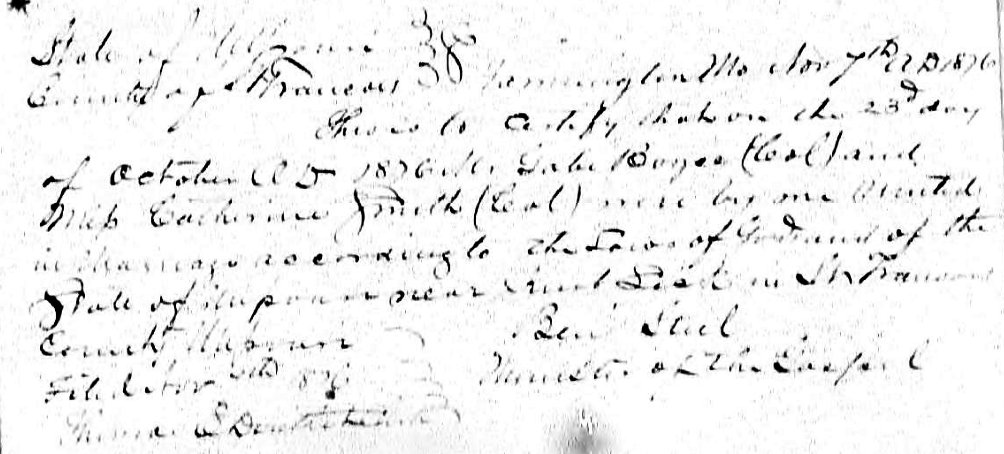 State of Missouri
County of St Francois Farmington Mo Nov 7th AD 1876
This is to certify that on the 23d day
of October AD 1876 Mr Gabe (Col) and
Miss Catherine Smith (Col) were by me united
in Marriage according to the Laws of God and of the
State of Missouri near in St Francois
County Missouri
Ben Stiel
Filed Nov 1876
Minister of the Gospel
Thomas S